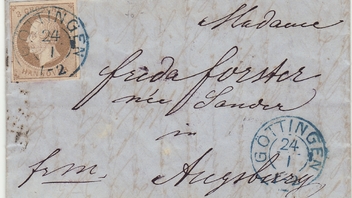 GÖTTINGEN
24
1
1-2
HANN
Madame
frida forster
née Sander
in
frm. Augsburg
GÖTTINGEN
24
1